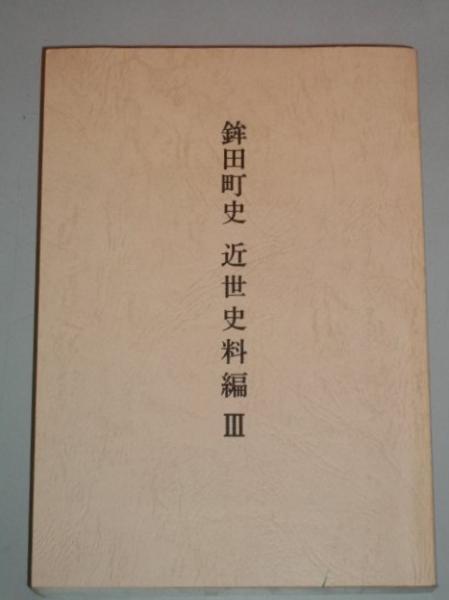 鉾田町史 近世史料編 Ⅲ